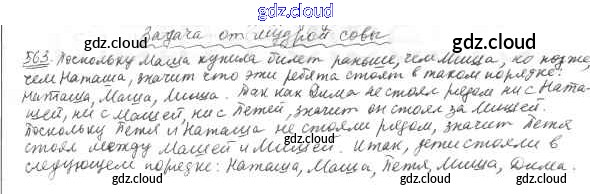 gdz.cloud
Задача от мудрой совы
gdz.cloud gdz.cloud
563. Поскольку Маша купила билет раньше, чем Миша, но позже,
чем Наташа, значит что эти ребята стоят в таком порядке:
Наташа, Маша, Миша. Так как Дима не стоял рядом ни с Ната-
шей, ни с Машей, ни с Петей, значит он стоял за Мишей.
gdz.cloud gdz.cloud
Поскольку Петя и Наташа не стояли рядом, значит Петя
стоял между Машей и Мишей. Итак, дети стояли в
следующем порядке: Наташа, Маша, Петя, Миша, Дима.
gdz.cloud gdz.cloud